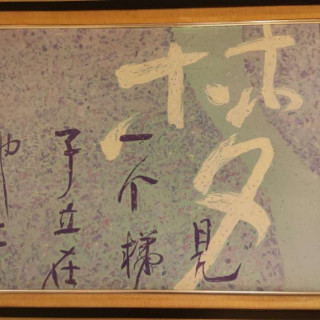 梦
見
一个梯
子立在